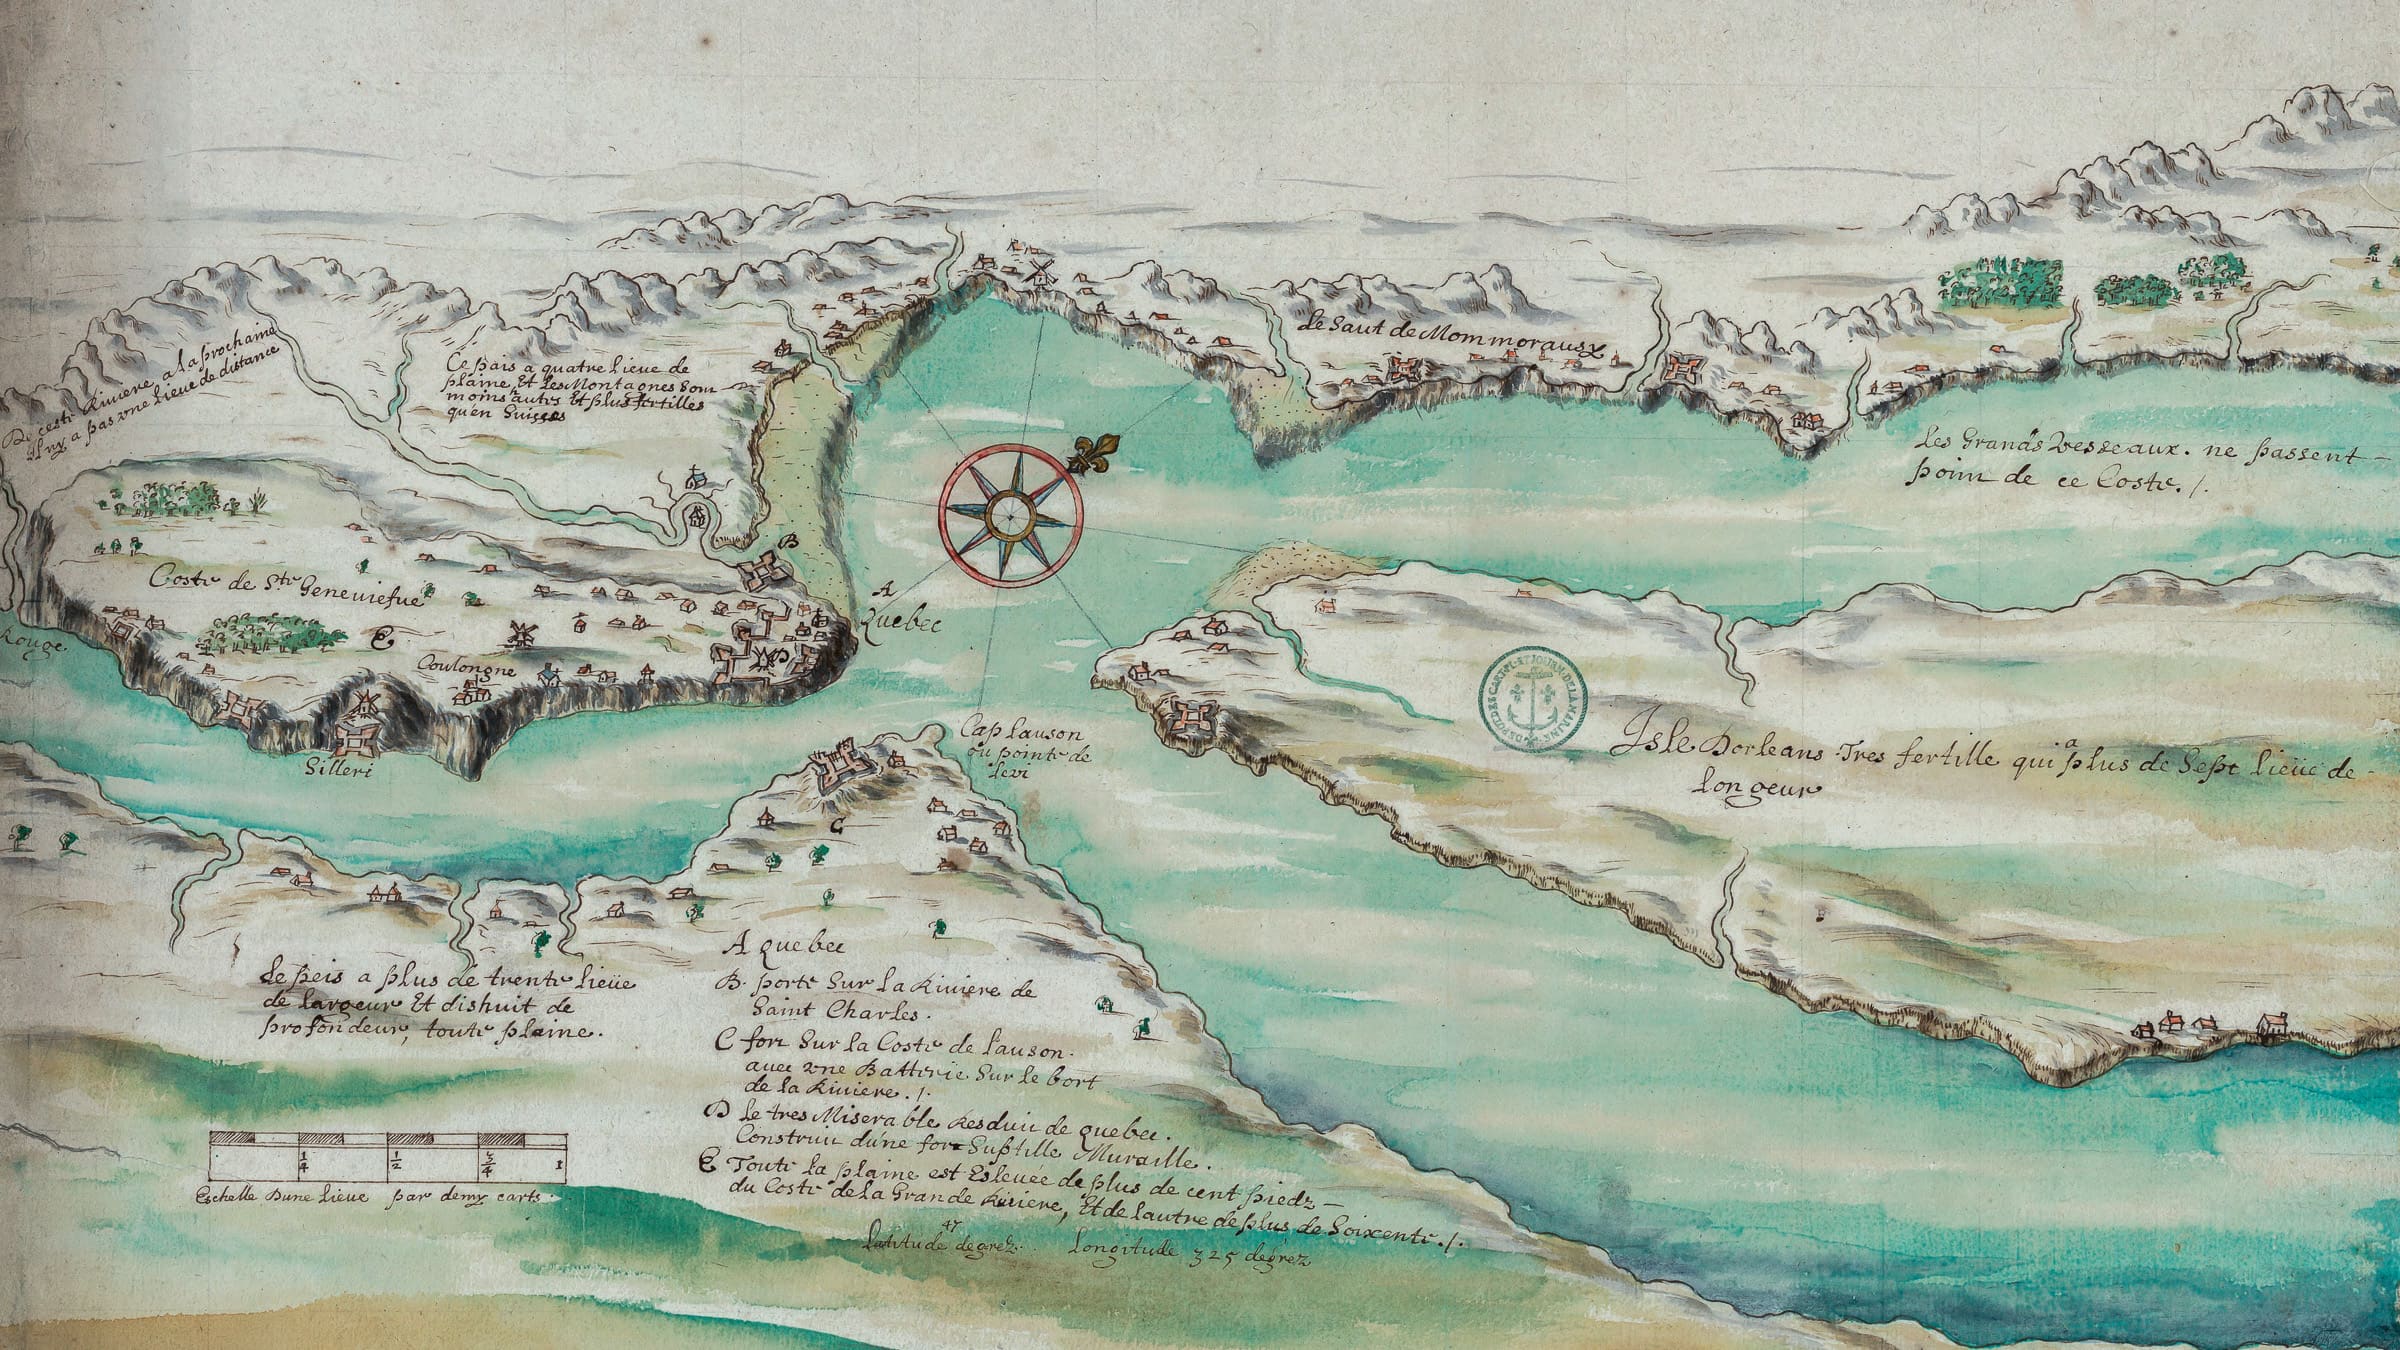 De ceste Riviere a la prochaine
Il ny a pas vne lieue de distance
Ce pais a quatre lieue de
plaine, Et les Montagnes Som
moins hautes Et plus fertilles
qu'en Suisses
Le Saut de Mommorausy
Les Grands Vesseaux. ne passent -
poim de ce Coste. /.
B
Coste de Ste Geneuiefue
A
Quebec
E
Rouge.
Coulongne
D
Silleri
Cap lauson
ou pointe de
levi
C
Isle Dorleans Tres fertille qui a plus de Sept lieüe de -
longeur
Le peis a plus de trente lieüe
de largeur Et dishuit de
profondeur, toute plaine.
A quebec
B. porte Sur la Riuiere de
Saint Charles.
C fort Sur la Coste de Lauson.
auec vne Batterie Sur le bort
de la Riuiere. /.
D le tres Miserable Resduit de quebec.
Construit d'une fort Suptille Muraille.
E Toute la plaine est Esleuée de plus de cent piedz -
du Coste de la Grande Riuiere, Et de lautre de plus de Soixente. /.
47
Latitude degrez. Longitude 325 degrez
1/4 1/2 3/4 1
Eschelle Dune lieue par demy carts.